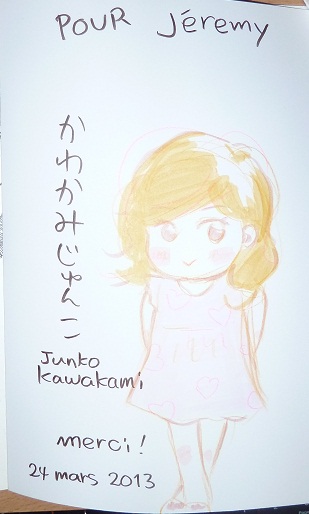 POUR Jéremy
かわかみじゅんこ
Junko
Kawakami
merci!
24 mars 2013